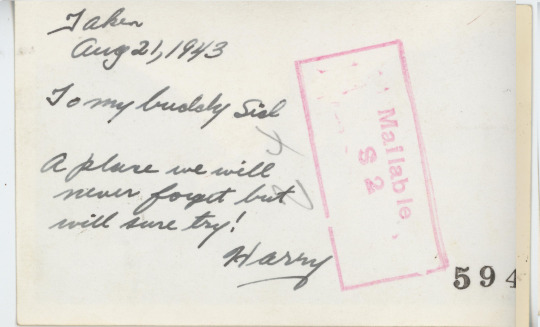 Taken
Aug 21, 1943
To my buddy Sid
A place we will
never forget but
will sure try!
Harry
Mailable
S 2
594